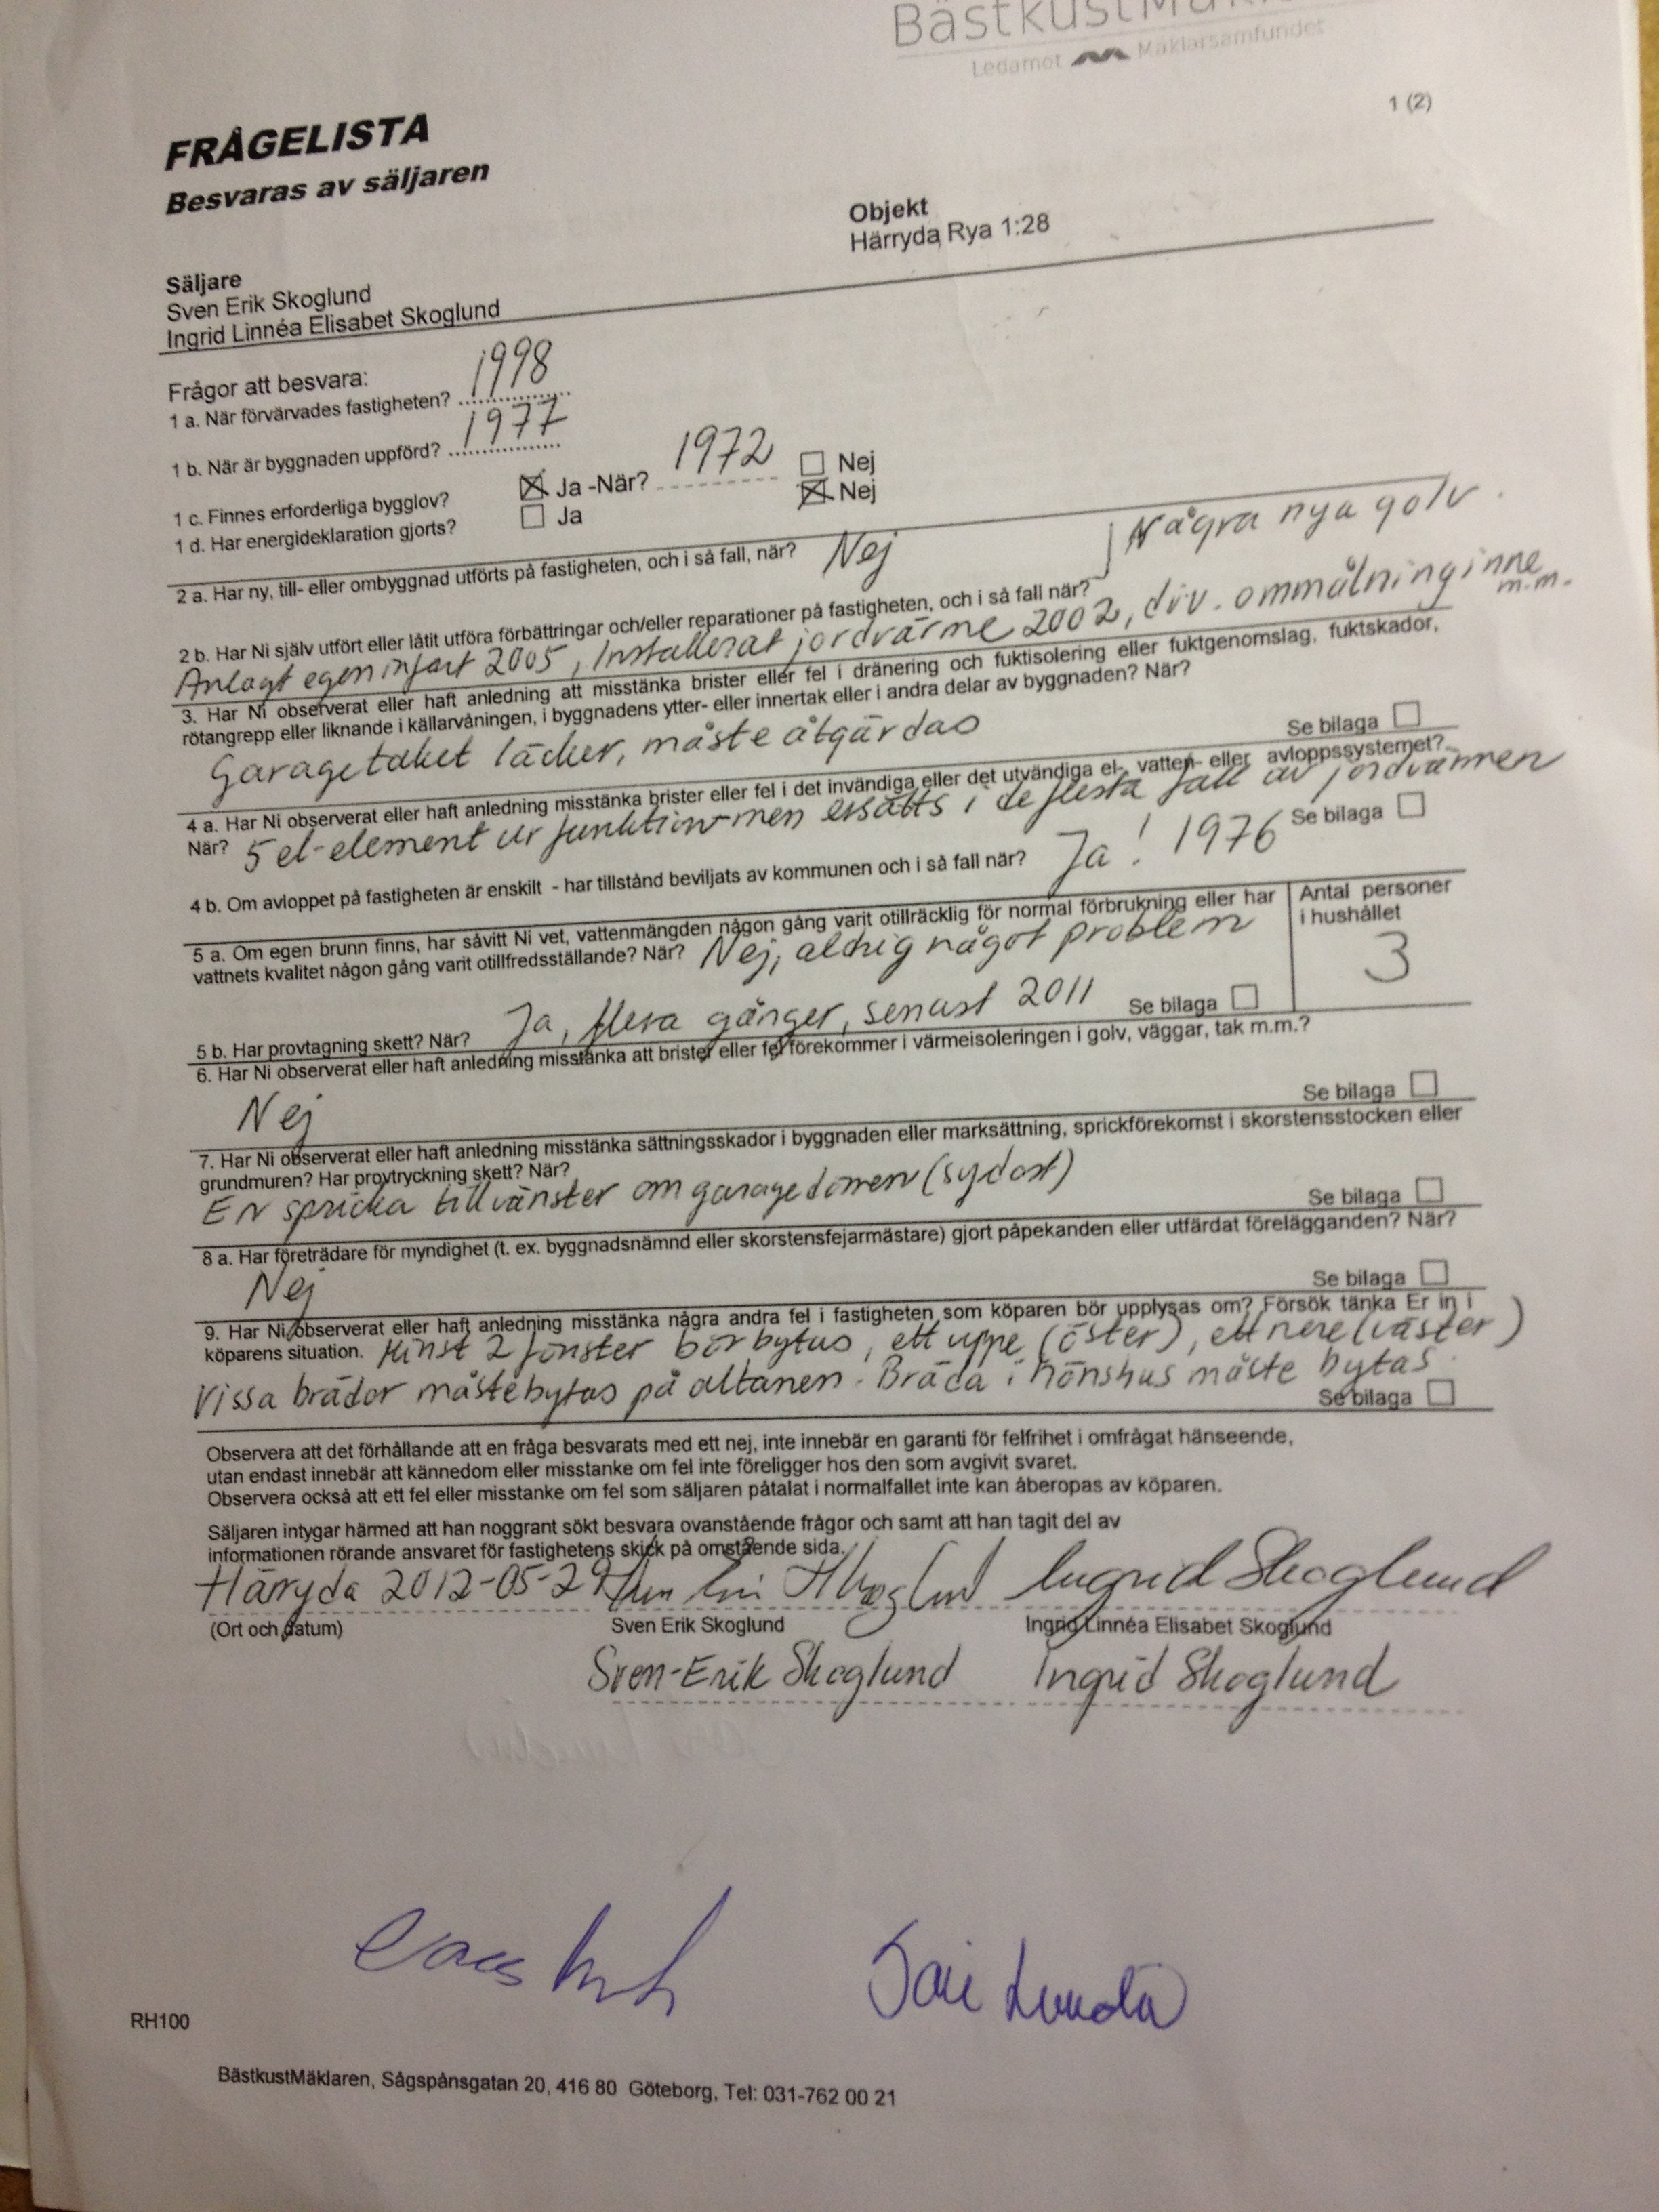 BästkustMäkl
Ledamot Mäklarsamfundet
1 (2)
FRÅGELISTA
Besvaras av säljaren
Objekt
Härryda Rya 1:28
Säljare
Sven Erik Skoglund
Ingrid Linnéa Elisabet Skoglund
Frågor att besvara:
1 a. När förvärvades fastigheten? 1998
1 b. När är byggnaden uppförd? 1977
1 c. Finnes erforderliga bygglov? Ja -När? 1972 Nej
1 d. Har energideklaration gjorts? Ja Nej
2 a. Har ny, till- eller ombyggnad utförts på fastigheten, och i så fall, när? Nej
Några nya golv.
2 b. Har Ni själv utfört eller låtit utföra förbättringar och/eller reparationer på fastigheten, och i så fall när?
Anlagt egen infart 2005, Installerat jordvärme 2002, div. ommålning inne
m.m.
3. Har Ni observerat eller haft anledning att misstänka brister eller fel i dränering och fuktisolering eller fuktgenomslag, fuktskador,
rötangrepp eller liknande i källarvåningen, i byggnadens ytter- eller innertak eller i andra delar av byggnaden? När?
Garagetaket läcker, måste åtgärdas
Se bilaga
4 a. Har Ni observerat eller haft anledning misstänka brister eller fel i det invändiga eller det utvändiga el-, vatten- eller avloppssystemet?
När? 5 el-element ur funktion men ersätts i de flesta fall av jordvärmen
Se bilaga
4 b. Om avloppet på fastigheten är enskilt - har tillstånd beviljats av kommunen och i så fall när? Ja! 1976
5 a. Om egen brunn finns, har såvitt Ni vet, vattenmängden någon gång varit otillräcklig för normal förbrukning eller har
vattnets kvalitet någon gång varit otillfredsställande? När? Nej, aldrig något problem
Antal personer
i hushållet
3
5 b. Har provtagning skett? När? Ja, flera gånger, senast 2011 Se bilaga
6. Har Ni observerat eller haft anledning misstänka att brister eller fel förekommer i värmeisoleringen i golv, väggar, tak m.m.?
Nej
Se bilaga
7. Har Ni observerat eller haft anledning misstänka sättningsskador i byggnaden eller marksättning, sprickförekomst i skorstensstocken eller
grundmuren? Har provtryckning skett? När?
En spricka till vänster om garagedörren (sydost)
Se bilaga
8 a. Har företrädare för myndighet (t. ex. byggnadsnämnd eller skorstensfejarmästare) gjort påpekanden eller utfärdat förelägganden? När?
Nej
Se bilaga
9. Har Ni observerat eller haft anledning misstänka några andra fel i fastigheten som köparen bör upplysas om? Försök tänka Er in i
köparens situation. Minst 2 fönster bör bytas, ett uppe (öster), ett nere (väster)
Vissa brädor måste bytas på altanen. Bräda i hönshus måste bytas.
Se bilaga
Observera att det förhållande att en fråga besvarats med ett nej, inte innebär en garanti för felfrihet i omfrågat hänseende,
utan endast innebär att kännedom eller misstanke om fel inte föreligger hos den som avgivit svaret.
Observera också att ett fel eller misstanke om fel som säljaren påtalat i normalfallet inte kan åberopas av köparen.
Säljaren intygar härmed att han noggrant sökt besvara ovanstående frågor och samt att han tagit del av
informationen rörande ansvaret för fastighetens skick på omstående sida.
Härryda 2012-05-29 Sven Erik Skoglund Ingrid Skoglund
(Ort och datum) Sven Erik Skoglund Ingrid Linnéa Elisabet Skoglund
Sven-Erik Skoglund Ingrid Skoglund
RH100
BästkustMäklaren, Sågspånsgatan 20, 416 80 Göteborg, Tel: 031-762 00 21